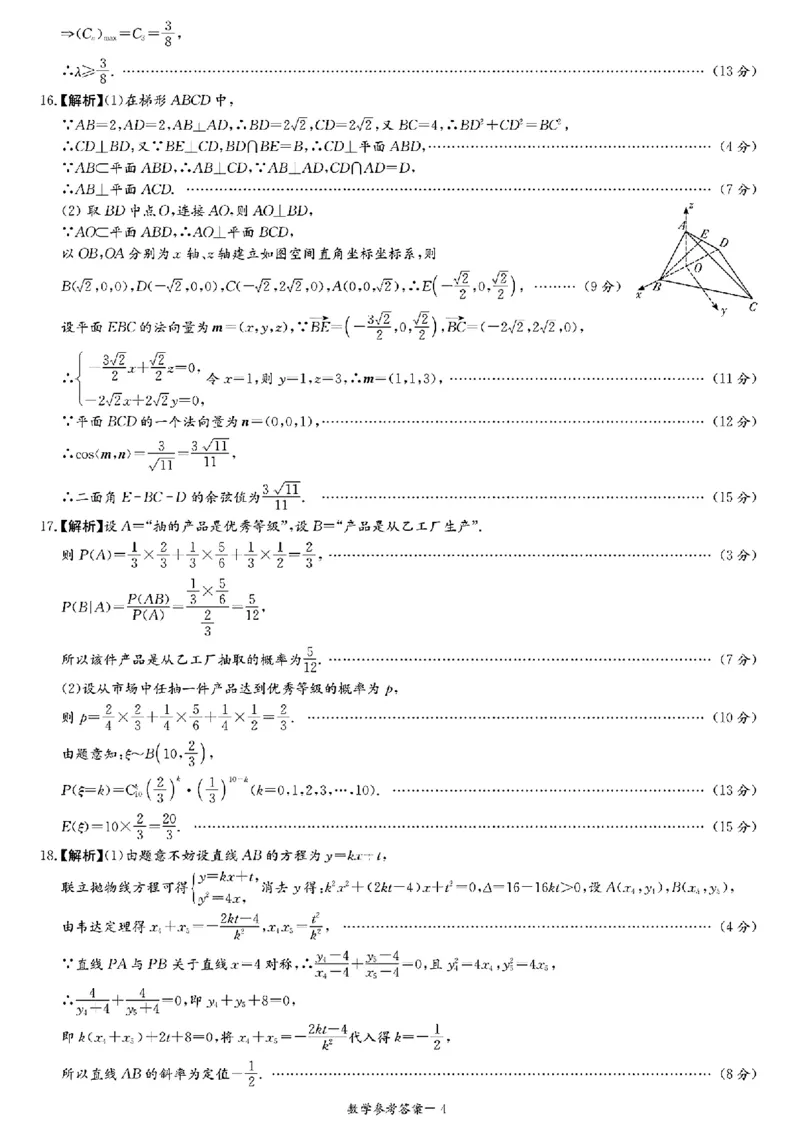 ⇒(Cₙ)max=C₃=3/8,
∴λ≥3/8. (13分)
16.【解析】(1)在梯形ABCD中,
∵AB=2,AD=2,AB⊥AD,∴BD=2√2,CD=2√2,又BC=4,∴BD²+CD²=BC²,
∴CD⊥BD,又∵BE⊥CD,BD∩BE=B,∴CD⊥平面ABD, (4分)
∵AB⊂平面ABD,∴AB⊥CD,∵AB⊥AD,CD∩AD=D,
∴AB⊥平面ACD. (7分)
(2) 取BD中点O,连接AO,则AO⊥BD,
∵AO⊂平面ABD,∴AO⊥平面BCD,
以OB,OA分别为x轴、z轴建立如图空间直角坐标坐标系,则
B(√2,0,0),D(-√2,0,0),C(-√2,2√2,0),A(0,0,√2),∴E(-√2/2,0,√2/2), (9分)
z
A
E
D
O
B
x
y
C
设平面EBC的法向量为m=(x,y,z),∵BE=(-3√2/2,0,√2/2),BC=(-2√2,2√2,0),
∴{-3√2/2x+√2/2z=0,
-2√2x+2√2y=0,
令x=1,则y=1,z=3,∴m=(1,1,3), (11分)
∵平面BCD的一个法向量为n=(0,0,1), (12分)
∴cos⟨m,n⟩=3/√11=3√11/11,
∴二面角E-BC-D的余弦值为3√11/11. (15分)
17.【解析】设A=“抽的产品是优秀等级”,设B=“产品是从乙工厂生产”.
则P(A)=1/3×2/3+1/3×5/6+1/3×1/2=2/3, (3分)
P(B|A)=P(AB)/P(A)=(1/3×5/6)/(2/3)=5/12,
所以该件产品是从乙工厂抽取的概率为5/12. (7分)
(2)设从市场中任抽一件产品达到优秀等级的概率为p,
则p=2/4×2/3+1/4×5/6+1/4×1/2=2/3. (10分)
由题意知:ξ~B(10,2/3),
P(ξ=k)=C₁₀ᵏ(2/3)ᵏ·(1/3)¹⁰⁻ᵏ(k=0,1,2,3,…,10). (13分)
E(ξ)=10×2/3=20/3. (15分)
18.【解析】(1)由题意不妨设直线AB的方程为y=kx+t,
联立抛物线方程可得{y=kx+t,
y²=4x,
消去y得:k²x²+(2kt-4)x+t²=0,Δ=16-16kt>0,设A(x₄,y₄),B(x₅,y₅),
由韦达定理得x₄+x₅=-(2kt-4)/k²,x₄x₅=t²/k², (4分)
∵直线PA与PB关于直线x=4对称,∴(y₄-4)/(x₄-4)+(y₅-4)/(x₅-4)=0,且y₄²=4x₄,y₅²=4x₅,
∴4/(y₄+4)+4/(y₅+4)=0,即y₄+y₅+8=0,
即k(x₄+x₅)+2t+8=0,将x₄+x₅=-(2kt-4)/k²代入得k=-1/2,
所以直线AB的斜率为定值-1/2. (8分)
数学参考答案-4